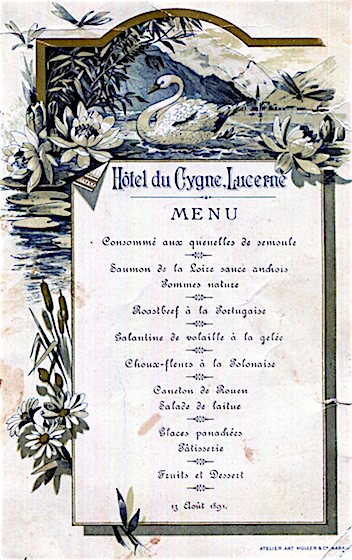 Hôtel du Cygne, Lucerne
MENU
Consommé aux quenelles de semoule
Saumon de la Loire sauce anchois
Pommes nature
Roastbeef à la Portugaise
Galantine de volaille à la gelée
Choux-fleurs à la Polonaise
Caneton de Rouen
Salade de laitue
Glaces panachées
Pâtisserie
Fruits et Dessert
13 Août 1891.
ATELIER ART. MÜLLER & Cº